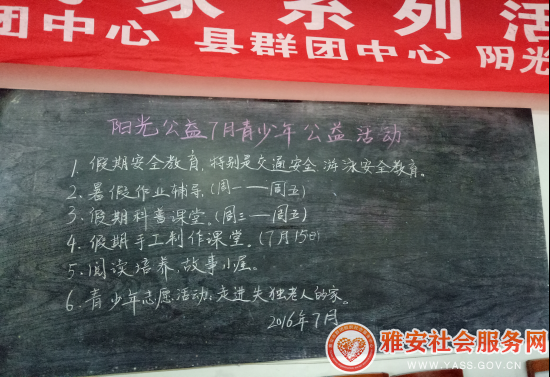 家系列活
团中心 县群团中心 阳光
阳光公益7月青少年公益活动
1. 假期安全教育,特别是交通安全、游泳安全教育。
2. 暑假作业辅导,(周一——周五)
3. 假期科普课堂,(周三——周五)
4. 假期手工制作课堂,(7月15日)
5. 阅读培养,故事小屋。
6. 青少年志愿活动:走进失独老人的家。
2016年7月
雅安社会服务网
WWW.YASS.GOV.CN